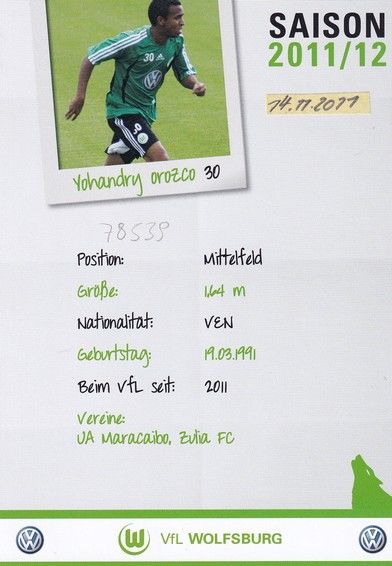 SAISON
2011/12
14.11.2011
30
Yohandry Orozco 30
78539
Position: Mittelfeld
Größe: 1,64 m
Nationalität: VEN
Geburtstag: 19.03.1991
Beim VfL seit: 2011
Vereine:
UA Maracaibo, Zulia FC
VfL WOLFSBURG